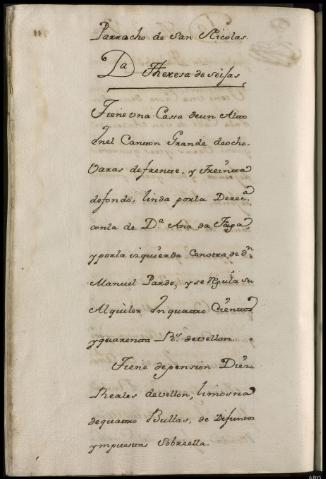 Parracho de San Nicolas
Da Theresa de seisas
Tiene una Cassa de un Alto
Enel Canton Grande deocho
Varas defrente, y Treinta
defondo, linda porla Derecha
conla de Da. Ana da
y porla izquierda Conotra de Dn.
Manuel Pardo, y se Regula su
Alquiler En quatro Cientos
y quarenta Rs. devellon
Tiene depension Diez
Reales devellon, limosna
dequatro Bullas, de Difuntos
ympuestas Sobreella